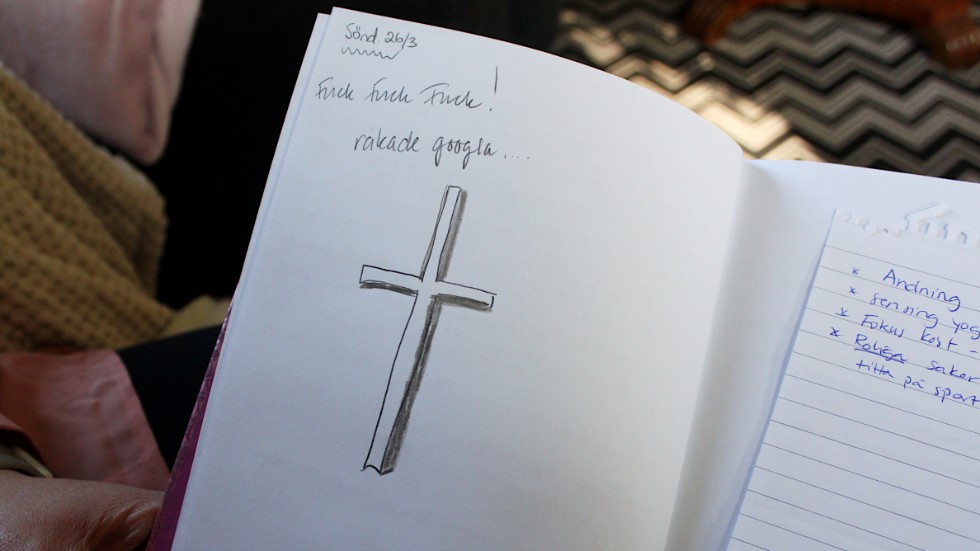 Sönd 26/3
Fuck Fuck Fuck!
råkade googla....
* Andning
* sensing yog
* Fokus kost -
* Roliga saker
titta på spart